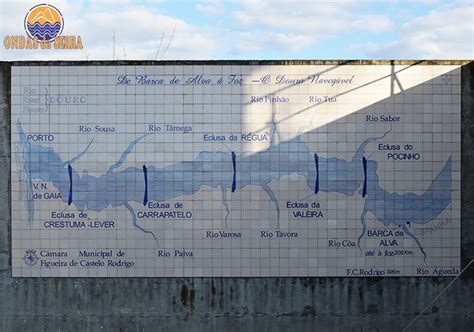 ONDAS DA SERRA
De Barca de Alva à Foz - O Douro Navegável
Rio
River
DOURO
Rio Pinhão
Rio Tua
Rio Sabor
Rio Sousa
Rio Tâmega
Eclusa da RÉGUA
Eclusa do
POCINHO
PORTO
V. N.
de GAIA
Eclusa de
CRESTUMA-LEVER
Eclusa de
CARRAPATELO
Eclusa da
VALEIRA
BARCA de
ALVA
até à foz 209 Km
Rio Varosa
Rio Távora
Rio Côa
Rio Paiva
Câmara Municipal de
Figueira de Castelo Rodrigo
F.C.Rodrigo 19Km
Rio Águeda